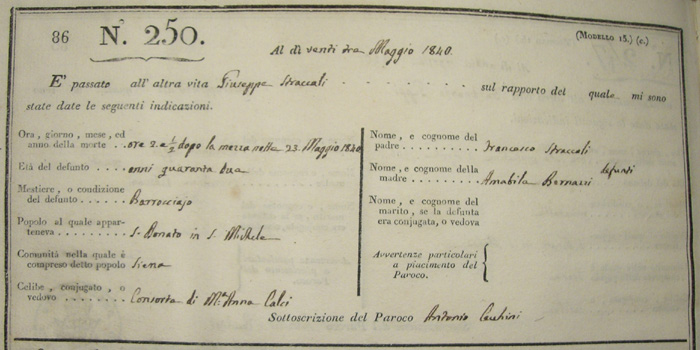 86 N.º 250. (Modello 15.) (c.)
Al dì venti tre Maggio 1840.
E' passato all'altra vita Giuseppe Straccali sul rapporto del quale mi sono
state date le seguenti indicazioni.
Ora, giorno, mese, ed
anno della morte . . ore 2. e ½ dopo la mezza notte 23. Maggio 1840
Età del defunto . . . . anni quaranta due
Mestiere, o condizione
del defunto . . . . . . Barrocciajo
Popolo al quale appar-
teneva . . . . . . . . S. Donato in S. Michele
Comunità nella quale è
compreso detto popolo Siena
Celibe, conjugato, o
vedovo . . . . . . . . Consorte di M.ª Anna Calci
Nome, e cognome del
padre . . . . . . . . . . Francesco Straccali
Nome, e cognome della defunti
madre . . . . . . . . . Annabila Bernazzi
Nome, e cognome del
marito, se la defunta
era conjugata, o vedova
Avvertenze particolari
a piacimento del
Paroco.
Sottoscrizione del Paroco Antonio Cecchini